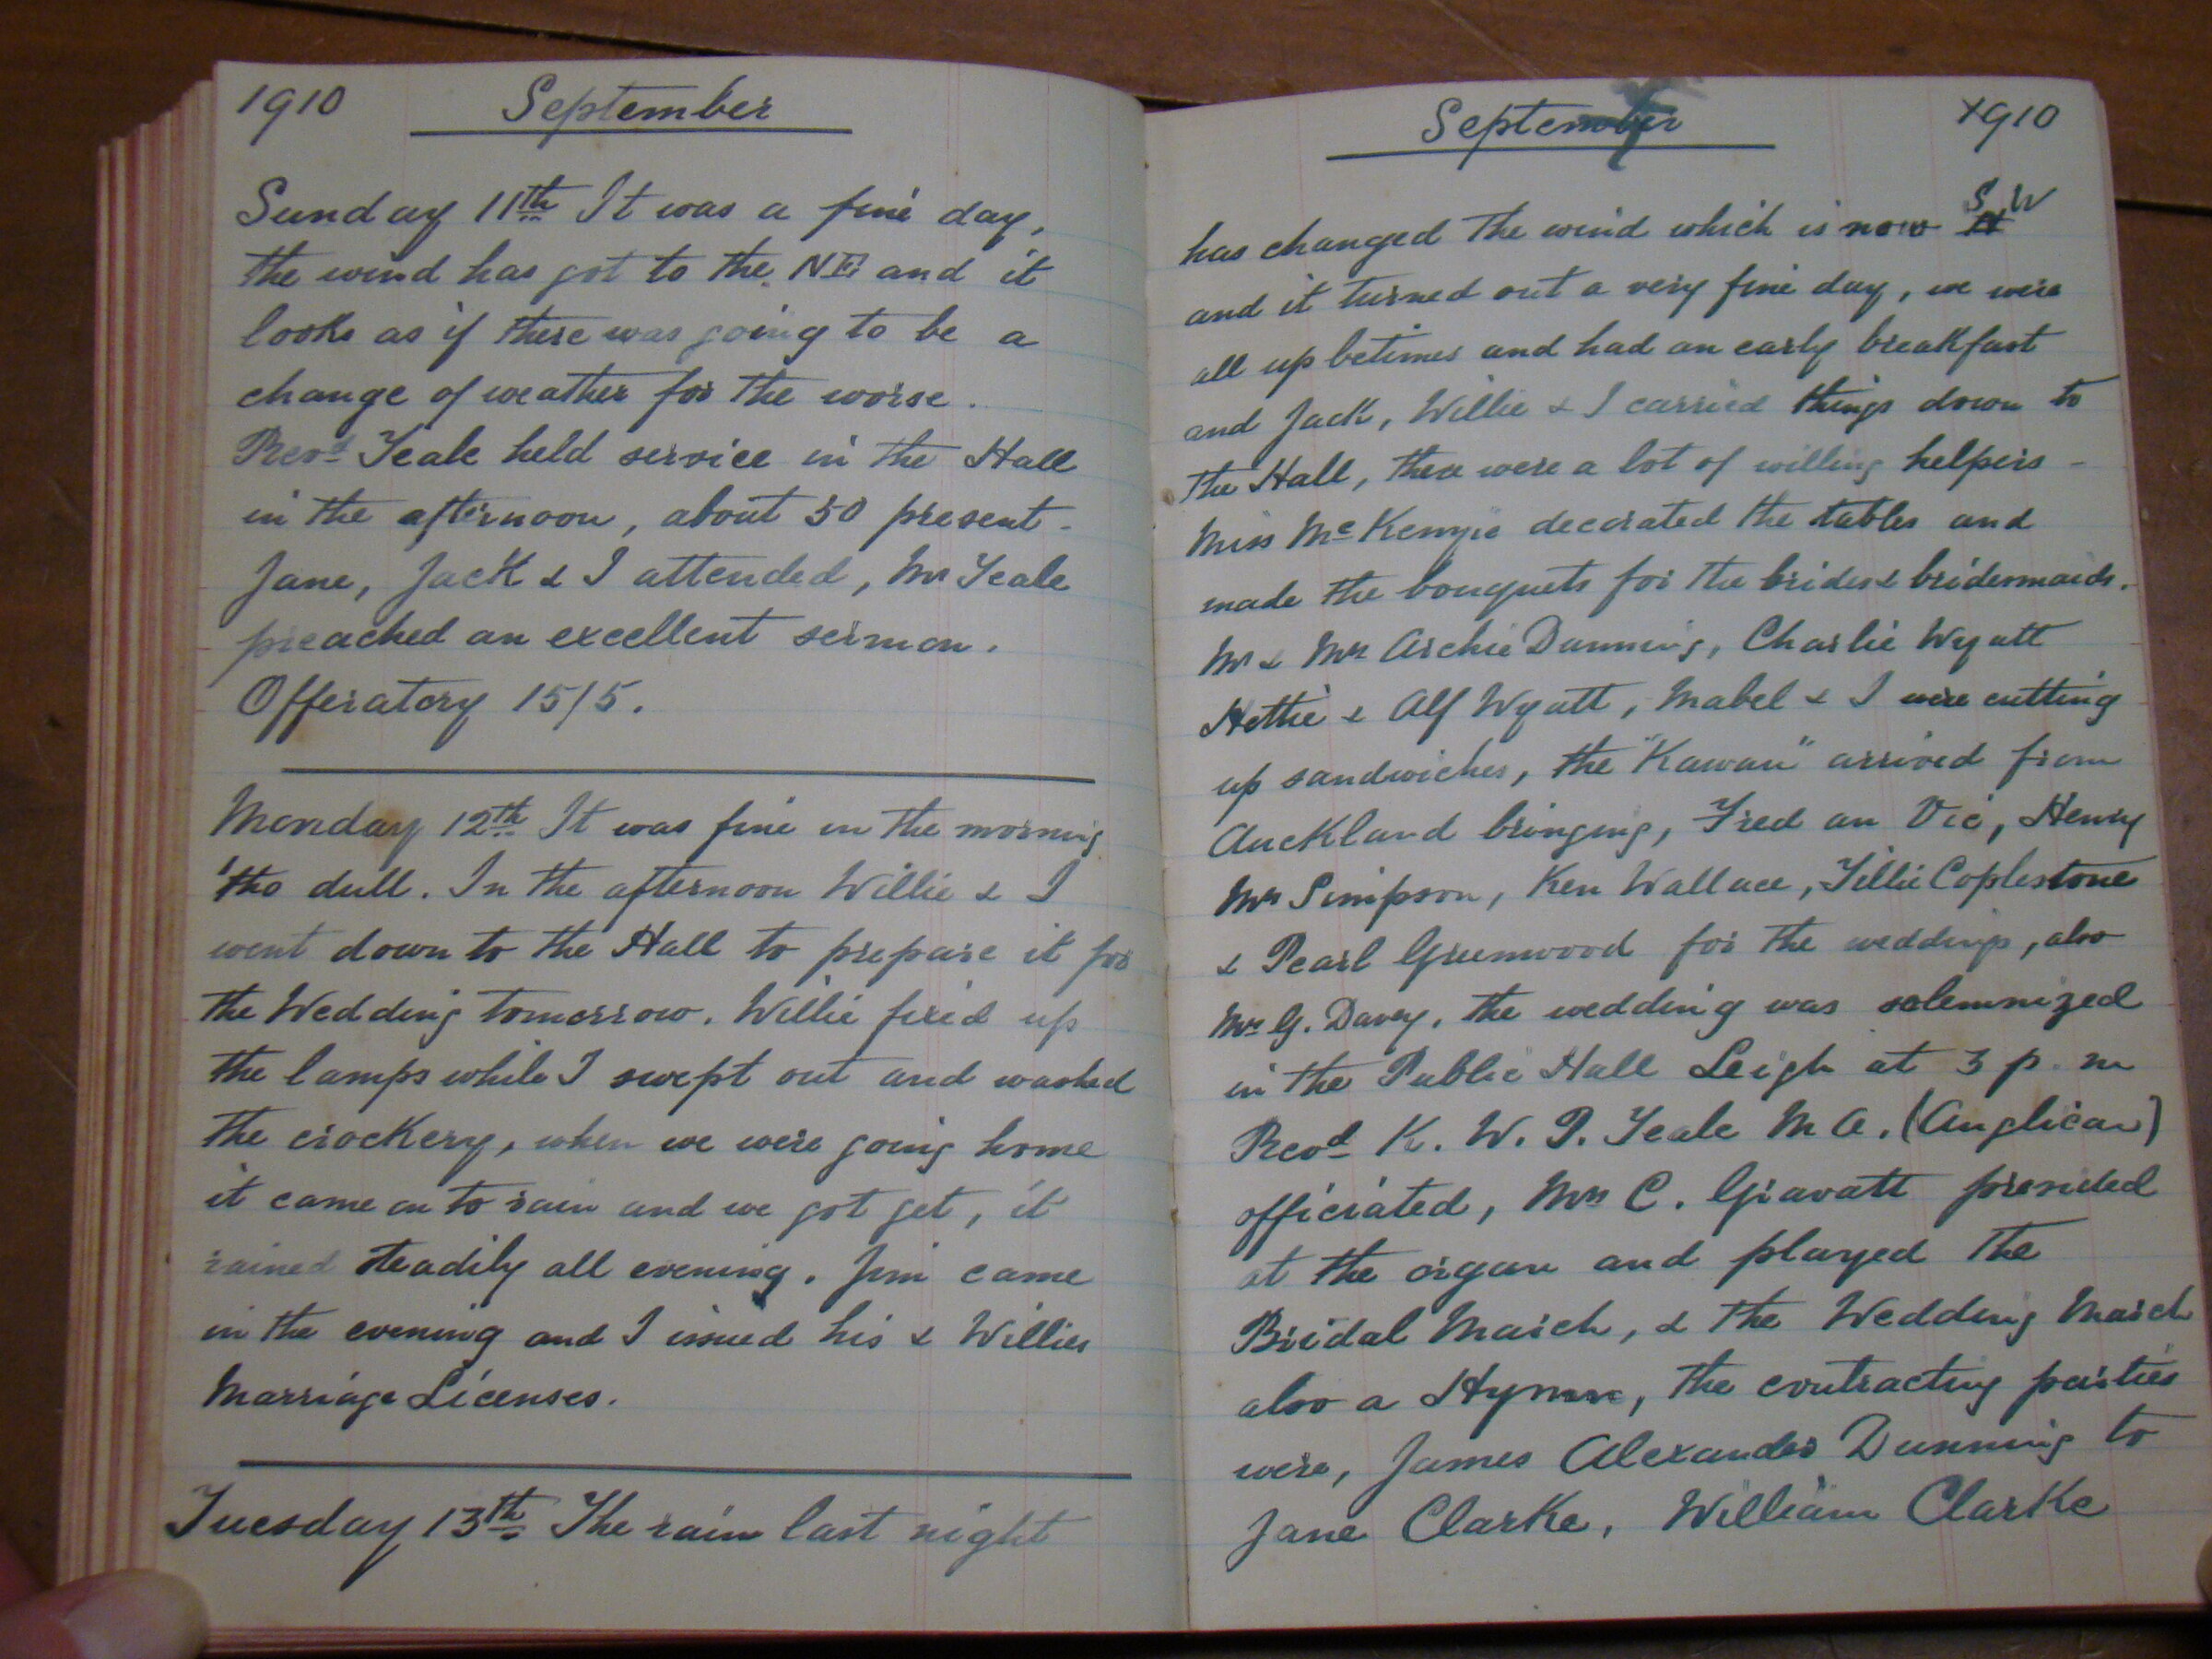 1910 September
Sunday 11th It was a fine day,
the wind has got to the NE and it
looks as if there was going to be a
change of weather for the worse.
Revd Teale held service in the Hall
in the afternoon, about 50 present -
Jane, Jack & I attended, Mr Teale
preached an excellent sermon.
Offeratory 15/5.
Monday 12th It was fine in the morning
'tho dull. In the afternoon Willie & I
went down to the Hall to prepare it for
the Wedding tomorrow. Willie fixed up
the lamps while I swept out and washed
the crockery, when we were going home
it came on to rain and we got get, it
rained steadily all evening. Jim came
in the evening and I issued his & Willies
Marriage Licenses.
Tuesday 13th The rain last night
September 1910
has changed the wind which is now S W
and it turned out a very fine day, we were
all up betimes and had an early breakfast
and Jack, Willie & I carried things down to
the Hall, there were a lot of willing helpers -
Miss McKenzie decorated the tables and
made the bouquets for the brides & bridesmaids.
Mr & Mrs Archie Dunning, Charlie Wyatt
Hettie & Alf Wyatt, Mabel & I were cutting
up sandwiches, the "Kawau" arrived from
Auckland bringing, Fred an Vic, Henry
Mrs Simpson, Ken Wallace, Tillie Coplestone
& Pearl Greenwood for the weddings, also
Mrs G. Davey, the wedding was solemnized
in the Public Hall Leigh at 3 p.m
Revd K. W. P. Teale M A. (Anglican)
officiated, Mrs C. Gravatt presided
at the organ and played the
Bridal March, & the Wedding March
also a Hymn, the contracting parties
were, James Alexander Dunning to
Jane Clarke, William Clarke